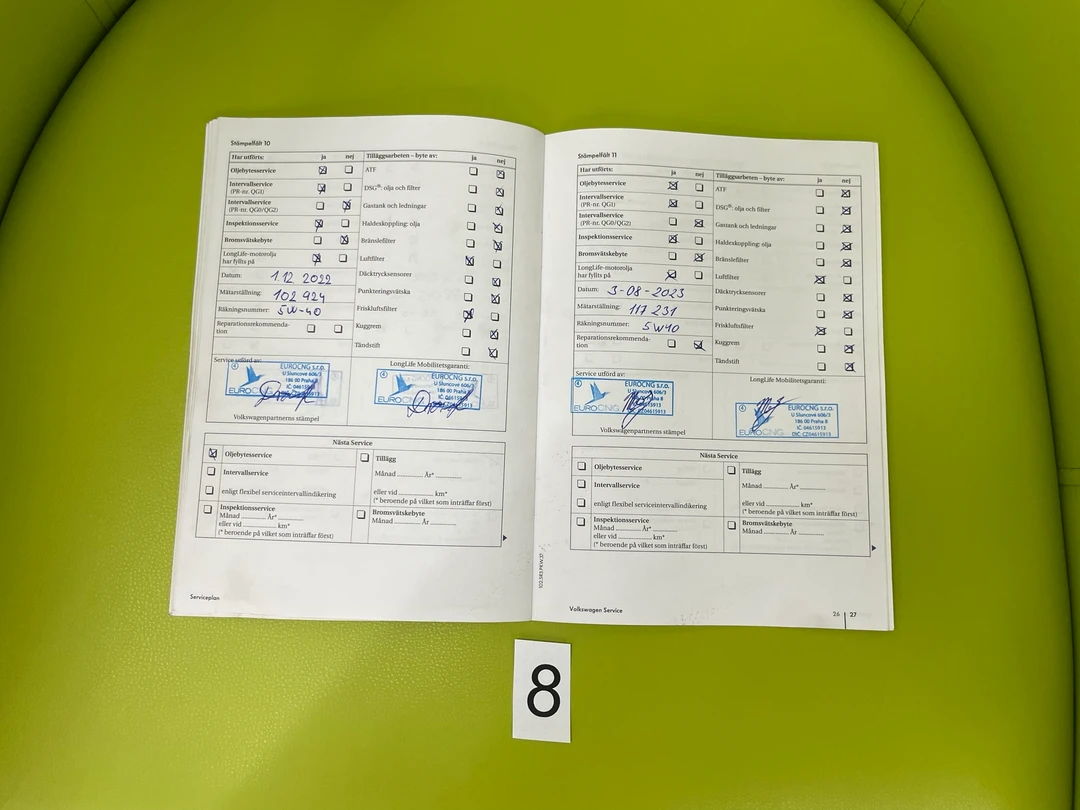 Stämpelfält 10
Har utförts: ja nej
Oljebytesservice
Intervallservice
(PR-nr. QG1)
Intervallservice
(PR-nr. QG0/QG2)
Inspektionsservice
Bromsvätskebyte
LongLife-motorolja
har fyllts på
Datum: 1.12 2022
Mätarställning: 102 924
Räkningsnummer: 5W-40
Reparationsrekommenda-
tion
Tilläggsarbeten – byte av: ja nej
ATF
DSG®: olja och filter
Gastank och ledningar
Haldexkoppling: olja
Bränslefilter
Luftfilter
Däcktrycksensorer
Punkteringsvätska
Friskluftsfilter
Kuggrem
Tändstift
Service utförd av:
4
EUROCNG s.r.o.
U Sluncové 606/3
186 00 Praha
IČ: 04615913
EUROCNG
Volkswagenpartnerns stämpel
LongLife Mobilitetsgaranti:
4
EUROCNG s.r.o.
U Sluncové 606/3
186 00 Praha 8
IČ: 04615913
CZ04615913
EUROCNG
Nästa Service
Oljebytesservice
Intervallservice
enligt flexibel serviceintervallindikering
Inspektionsservice
Månad År*
eller vid km*
(* beroende på vilket som inträffar först)
Tillägg
Månad År*
eller vid km*
(* beroende på vilket som inträffar först)
Bromsvätskebyte
Månad År
Serviceplan
Stämpelfält 11
Har utförts: ja nej
Oljebytesservice
Intervallservice
(PR-nr. QG1)
Intervallservice
(PR-nr. QG0/QG2)
Inspektionsservice
Bromsvätskebyte
LongLife-motorolja
har fyllts på
Datum: 3-08-2023
Mätarställning: 117 231
Räkningsnummer: 5W40
Reparationsrekommenda-
tion
Tilläggsarbeten – byte av: ja nej
ATF
DSG®: olja och filter
Gastank och ledningar
Haldexkoppling: olja
Bränslefilter
Luftfilter
Däcktrycksensorer
Punkteringsvätska
Friskluftsfilter
Kuggrem
Tändstift
Service utförd av:
4
EUROCNG s.r.o.
U Sluncové 606/3
Praha 8
CZ04615913
EUROCNG
Volkswagenpartnerns stämpel
LongLife Mobilitetsgaranti:
4
EUROCNG s.r.o.
U Sluncové 606/3
186 00 Praha 8
IČ: 04615913
DIČ: CZ04615913
EUROCNG
Nästa Service
Oljebytesservice
Intervallservice
enligt flexibel serviceintervallindikering
Inspektionsservice
Månad År*
eller vid km*
(* beroende på vilket som inträffar först)
Tillägg
Månad År*
eller vid km*
(* beroende på vilket som inträffar först)
Bromsvätskebyte
Månad År
Volkswagen Service
26 27
8